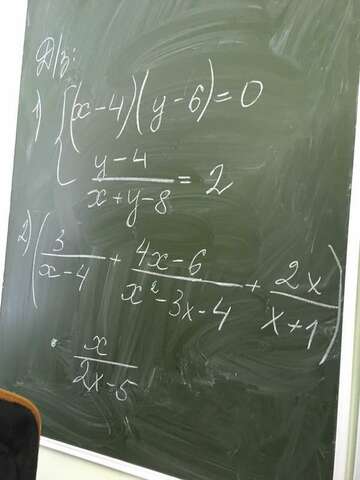 Д/з:
1) { (x-4)(y-6)=0
y-4 / x+y-8 = 2
2) ( 3/x-4 + 4x-6/x²-3x-4 + 2x/x+1 )
· x/2x-5